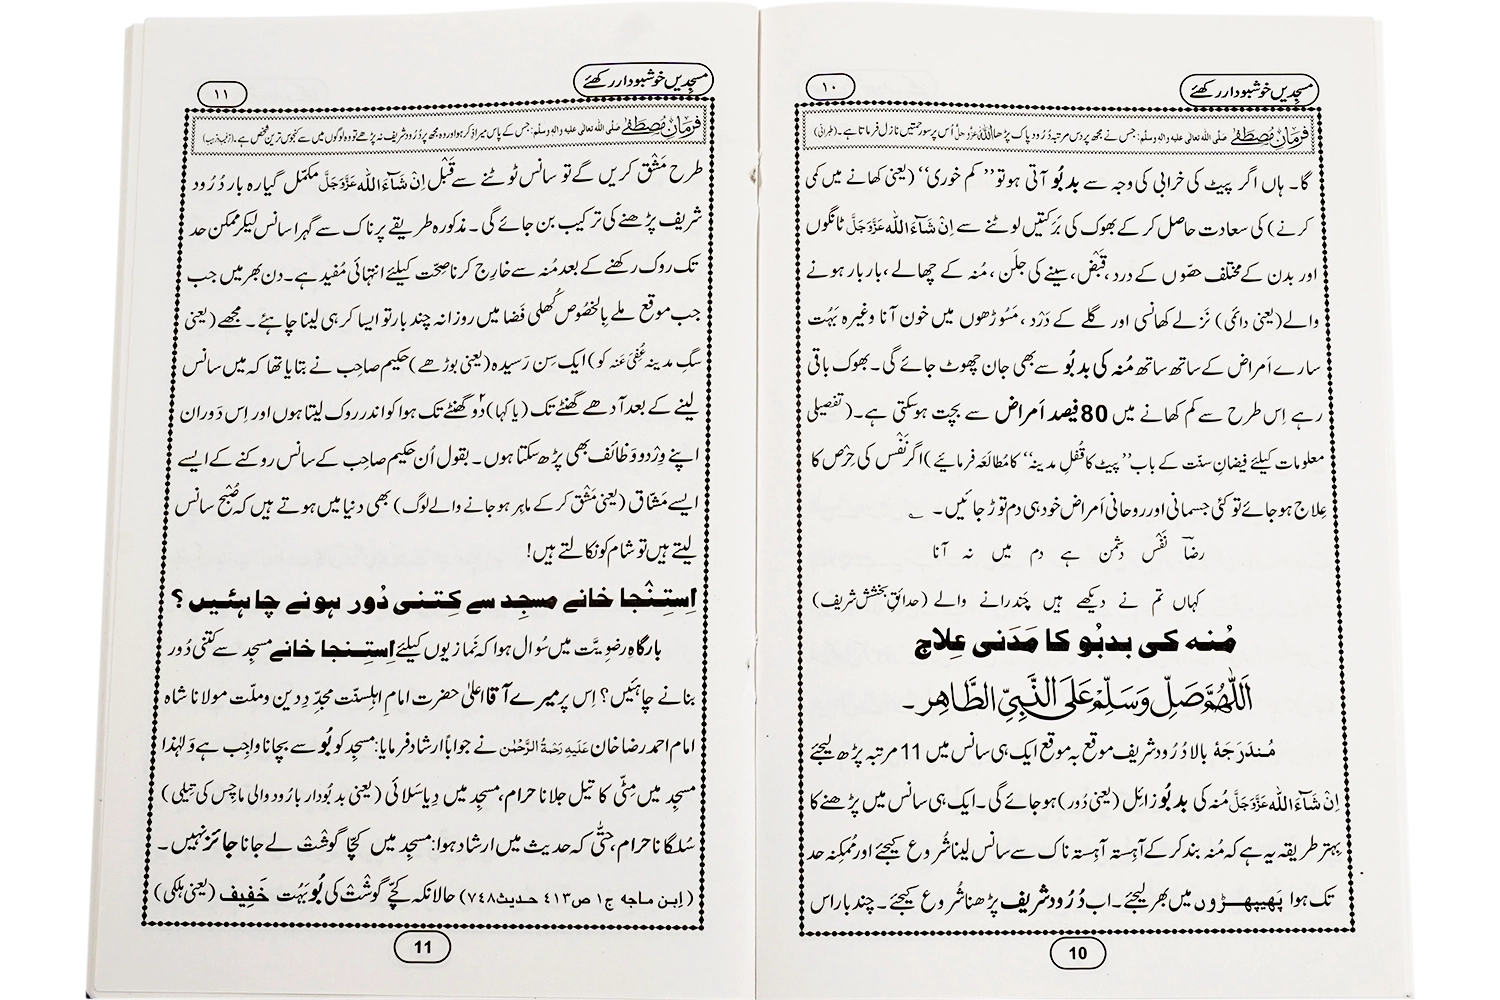 مسجدیں خوشبودار رکھئے
۱۰
فرمانِ مُصطَفٰے صلّی اللہ تعالٰی علیہ واٰلہٖ وسلّم: جس نے مجھ پر دس مرتبہ دُرُود پاک پڑھا اللہ عزّوجلّ اُس پر سو رحمتیں نازل فرماتا ہے۔ (طبرانی)
گا۔ ہاں اگر پیٹ کی خرابی کی وجہ سے بدبُو آتی ہو تو ’’کم خوری‘‘ (یعنی کھانے میں کمی
کرنے) کی سعادت حاصل کر کے بھوک کی بَرَکتیں لوٹنے سے اِنْ شَآءَ اللہ عَزَّوَجَلَّ ٹانگوں
اور بدن کے مختلف حصّوں کے درد، قبْض، سینے کی جلَن، مُنہ کے چھالے، بار بار ہونے
والے (یعنی دائمی) نَزلے کھانسی اور گلے کے دَرْد، مَسوڑھوں میں خون آنا وغیرہ بَہُت
سارے اَمراض کے ساتھ ساتھ مُنہ کی بدبُو سے بھی جان چھوٹ جائے گی۔ بھوک باقی
رہے اِس طرح سے کم کھانے میں 80 فیصد اَمراض سے بچت ہو سکتی ہے۔ (تفصیلی
معلومات کیلئے فیضانِ سنّت کے باب ’’پیٹ کا قُفلِ مدینہ‘‘ کا مُطالَعَہ فرمائیے) اگر نَفْس کی حِرْص کا
عِلاج ہو جائے تو کئی جسمانی اور روحانی اَمراض خود ہی دم توڑ جائیں۔ ؎
رضاؔ نَفْس دشمن ہے دم میں نہ آنا
کہاں تم نے دیکھے ہیں چَندرانے والے (حدائقِ بخشش شریف)
مُنہ کی بدبُو کا مَدَنی عِلاج
اَللّٰھُمَّ صَلِّ وَسَلِّمْ عَلَی النَّبِیِّ الطَّاھِر۔
مُندَرَجَۂ بالا دُرُود شریف موقع بہ موقع ایک ہی سانس میں 11 مرتبہ پڑھ لیجئے
اِنْ شَآءَ اللہ عَزَّوَجَلَّ مُنہ کی بدبُو زائل (یعنی دُور) ہو جائے گی۔ ایک ہی سانس میں پڑھنے کا
بہتر طریقہ یہ ہے کہ مُنہ بند کر کے آہستہ آہستہ ناک سے سانس لینا شُروع کیجئے اور مُمکِنہ حد
تک ہوا پھیپھڑوں میں بھر لیجئے۔ اب دُرُود شریف پڑھنا شُروع کیجئے۔ چند بار اس
10
مسجدیں خوشبودار رکھئے
۱۱
فرمانِ مُصطَفٰے صلّی اللہ تعالٰی علیہ واٰلہٖ وسلّم: جس کے پاس میرا ذکر ہوا اور وہ مجھ پر دُرُود شریف نہ پڑھے تو وہ لوگوں میں سے کنجوس ترین شخص ہے۔ (الترغیب والترہیب)
طرح مَشْق کریں گے تو سانس ٹوٹنے سے قَبْل اِنْ شَآءَ اللہ عَزَّوَجَلَّ مکمّل گیارہ بار دُرُود
شریف پڑھنے کی ترکیب بن جائے گی۔ مذکورہ طریقے پر ناک سے گہرا سانس لیکر ممکن حد
تک روک رکھنے کے بعد مُنہ سے خارِج کرنا صحّت کیلئے انتہائی مُفید ہے۔ دن بھر میں جب
جب موقع ملے بِالخُصُوص کُھلی فَضا میں روزانہ چند بار تو ایسا کر ہی لینا چاہئے۔ مجھے (یعنی
سگِ مدینہ عُفِیَ عَنہ کو) ایک سِن رَسیدہ (یعنی بوڑھے) حکیم صاحِب نے بتایا تھا کہ میں سانس
لینے کے بعد آدھے گھنٹے تک (یا کہا) دو گھنٹے تک ہوا کو اندر روک لیتا ہوں اور اِس دَوران
اپنے وِرْد و وَظائف بھی پڑھ سکتا ہوں۔ بقول اُن حکیم صاحِب کے سانس روکنے کے ایسے
ایسے مَشّاق (یعنی مَشْق کر کے ماہِر ہو جانے والے لوگ) بھی دنیا میں ہوتے ہیں کہ صُبْح سانس
لیتے ہیں تو شام کو نکالتے ہیں!
اِستِنْجا خانے مسجِد سے کِتنی دُور ہونے چاہئیں؟
بارگاہِ رضویَّت میں سُوال ہوا کہ نَمازیوں کیلئے اِستِنجا خانے مسجِد سے کتنی دُور
بنانے چاہئیں؟ اِس پر میرے آقا اعلیٰ حضرت امامِ اہلسنّت مجدِّدِ دین و ملّت مولانا شاہ
امام احمد رضا خان عَلَیہِ رَحمَۃُ الرَّحْمٰن نے جواباً ارشاد فرمایا: مسجد کو بُو سے بچانا واجِب ہے وَلہٰذا
مسجِد میں مِٹّی کا تیل جلانا حرام، مسجِد میں دِیا سَلائی (یعنی بدبُودار بارُود والی ماچِس کی تِیلی)
سُلگانا حرام، حتّٰی کہ حدیث میں ارشاد ہوا: مسجِد میں کچّا گوشْت لے جانا جائز نہیں۔
(اِبن ماجہ ج۱ ص۴۱۳ حدیث۷۴۸) حالانکہ کچّے گوشْت کی بُو بَہُت خَفِیف (یعنی ہلکی)
11